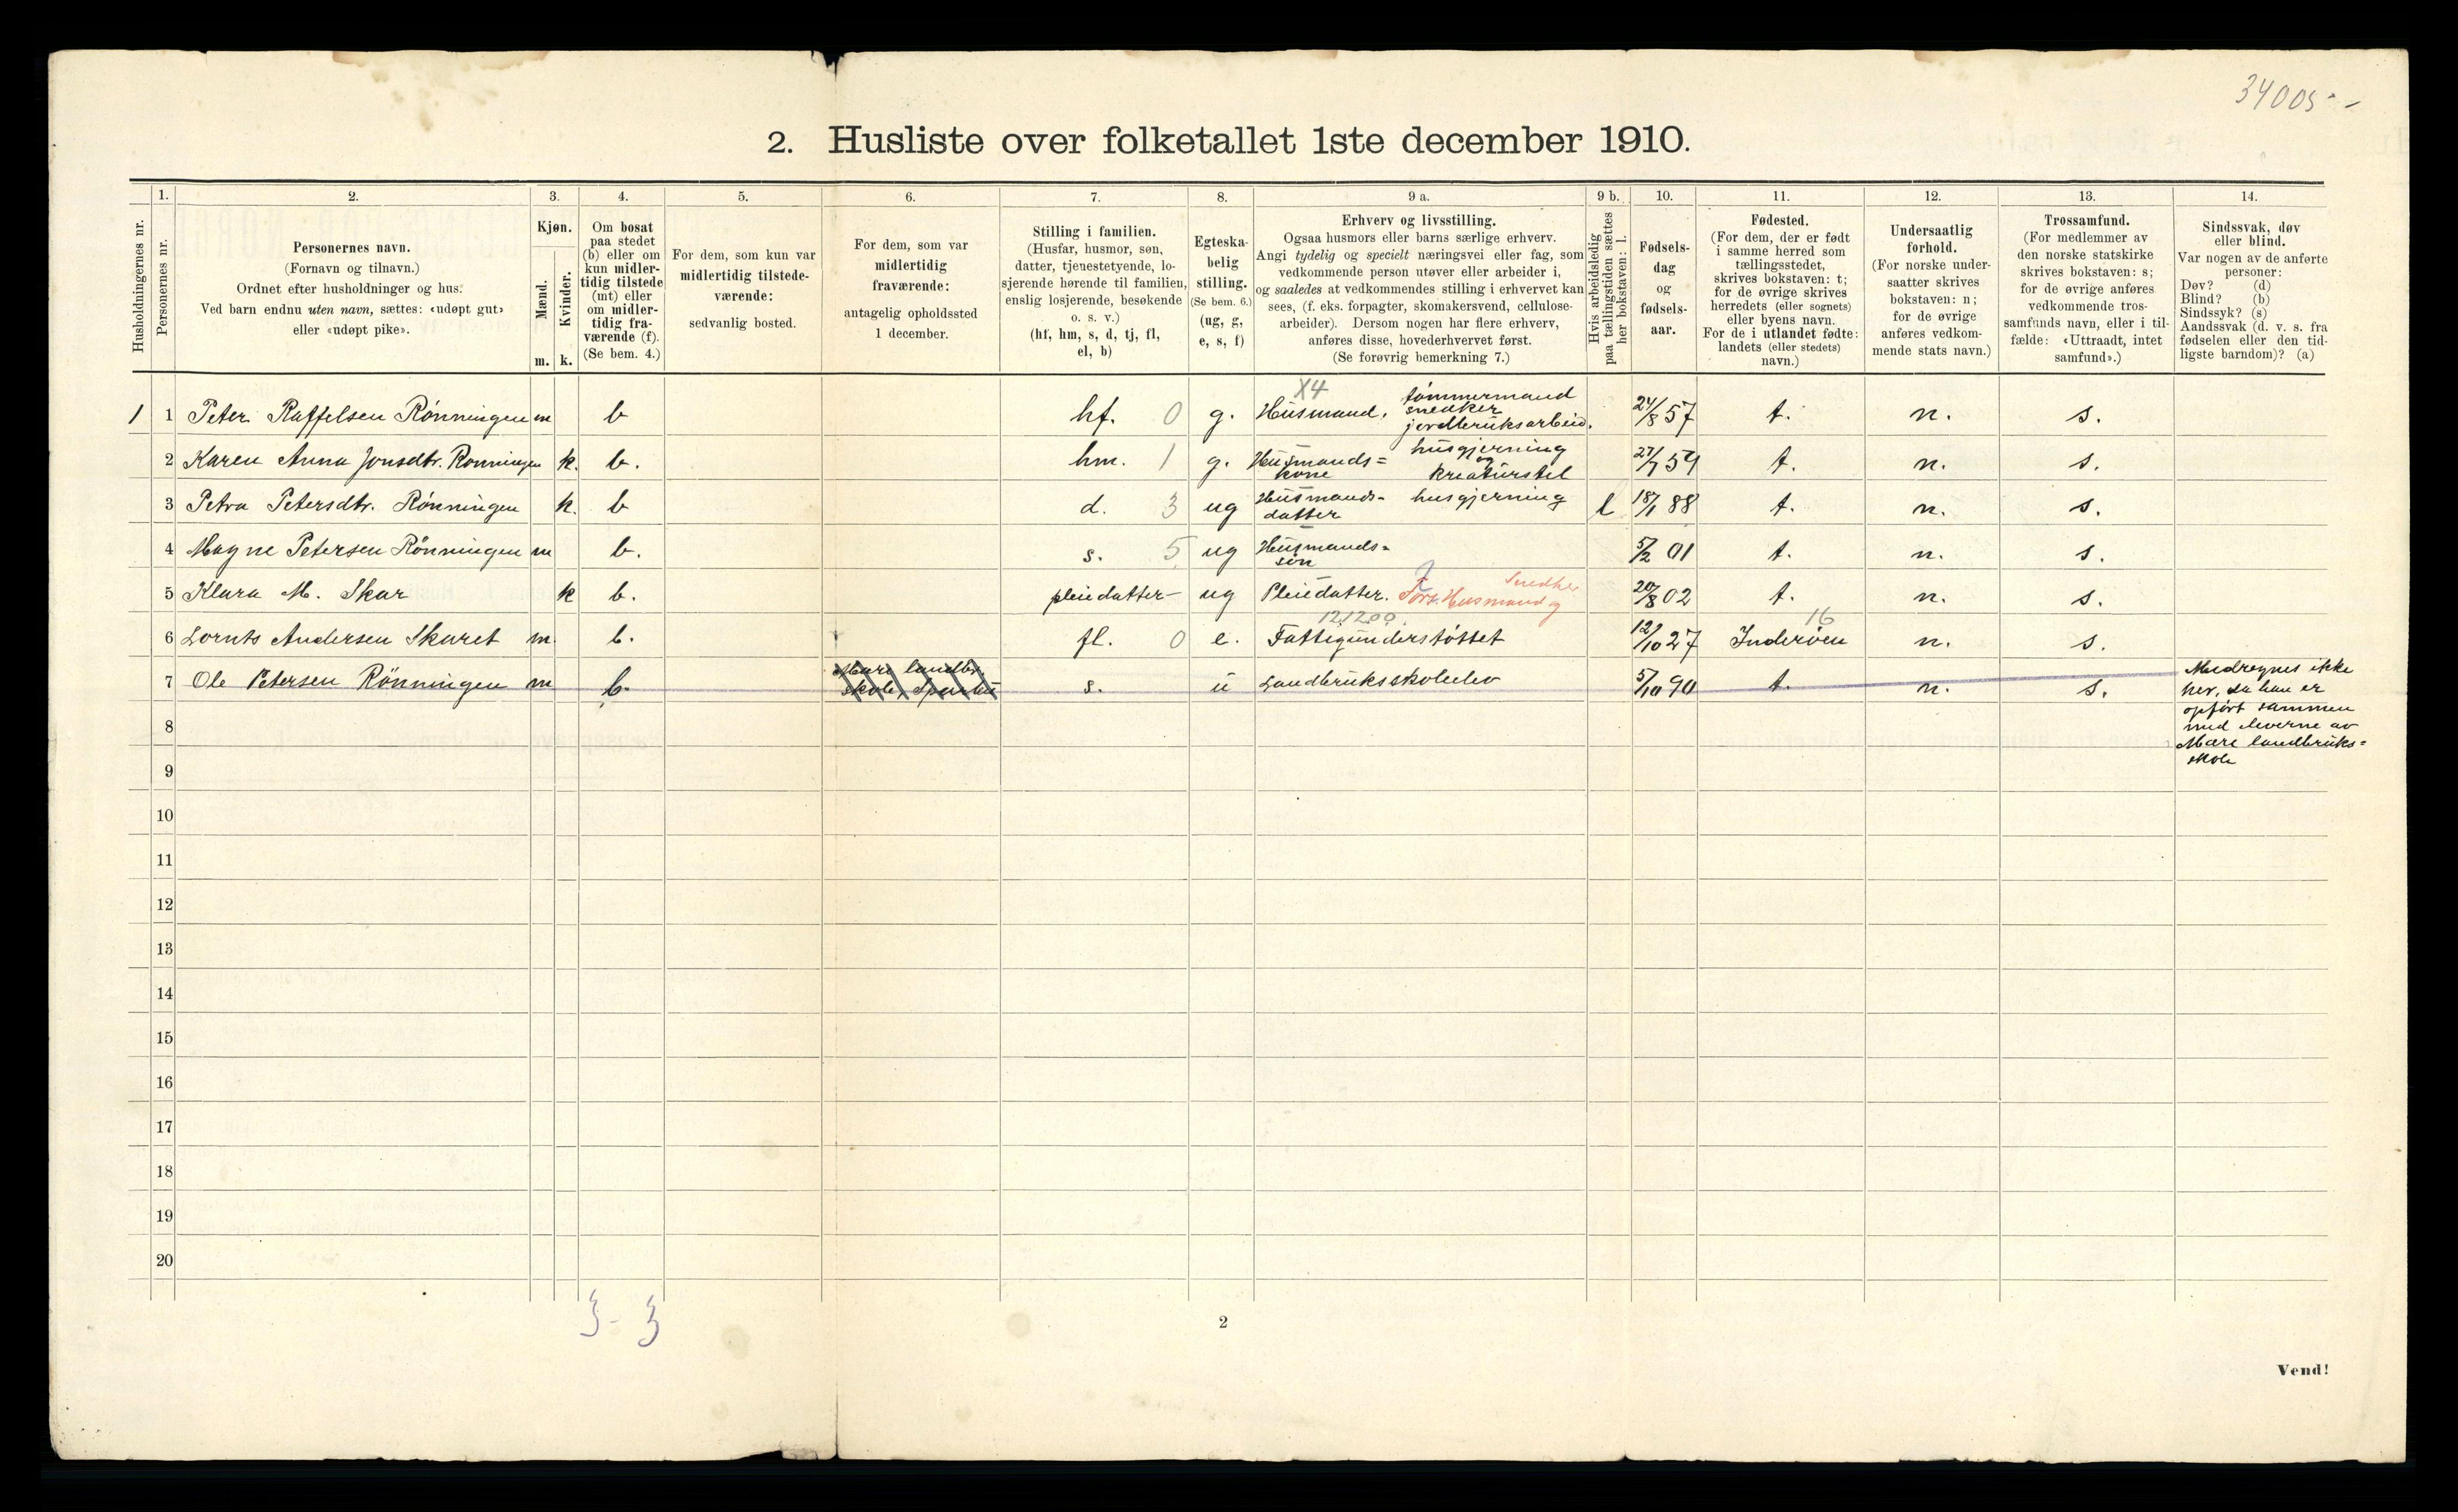 34005 - -
2. Husliste over folketallet 1ste december 1910.
Husholdningernes nr.
1.
Personernes nr.
2.
Personernes navn.
(Fornavn og tilnavn.)
Ordnet efter husholdninger og hus.
Ved barn endnu uten navn, sættes: «udøpt gut»
eller «udøpt pike».
3.
Kjøn.
Mænd.
Kvinder.
m. k.
4.
Om bosat
paa stedet
(b) eller om
kun midler-
tidig tilstede
(mt) eller
om midler-
tidig fra-
værende (f).
(Se bem. 4.)
5.
For dem, som kun var
midlertidig tilstede-
værende:
sedvanlig bosted.
6.
For dem, som var
midlertidig
fraværende:
antagelig opholdssted
1 december.
7.
Stilling i familien.
(Husfar, husmor, søn,
datter, tjenestetyende, lo-
sjerende hørende til familien,
enslig losjerende, besøkende
o. s. v.)
(hf, hm, s, d, tj, fl,
el, b)
8.
Egteska-
belig
stilling.
(Se bem. 6.)
(ug, g,
e, s, f)
9 a.
Erhverv og livsstilling.
Ogsaa husmors eller barns særlige erhverv.
Angi tydelig og specielt næringsvei eller fag, som
vedkommende person utøver eller arbeider i,
og saaledes at vedkommendes stilling i erhvervet kan
sees, (f. eks. forpagter, skomakersvend, cellulose-
arbeider). Dersom nogen har flere erhverv,
anføres disse, hovederhvervet først.
(Se forøvrig bemerkning 7.)
9 b.
Hvis arbeidsledig
paa tællingstiden sættes
her bokstaven: l.
10.
Fødsels-
dag
og
fødsels-
aar.
11.
Fødested.
(For dem, der er født
i samme herred som
tællingsstedet,
skrives bokstaven: t;
for de øvrige skrives
herredets (eller sognets)
eller byens navn.
For de i utlandet fødte:
landets (eller stedets)
navn.)
12.
Undersaatlig
forhold.
(For norske under-
saatter skrives
bokstaven: n;
for de øvrige
anføres vedkom-
mende stats navn.)
13.
Trossamfund.
(For medlemmer av
den norske statskirke
skrives bokstaven: s;
for de øvrige anføres
vedkommende tros-
samfunds navn, eller i til-
fælde: «Uttraadt, intet
samfund».)
14.
Sindssvak, døv
eller blind.
Var nogen av de anførte
personer:
Døv? (d)
Blind? (b)
Sindssyk? (s)
Aandssvak (d. v. s. fra
fødselen eller den tid-
ligste barndom)? (a)
1 1 Peter Raffelsen Rønningen m b hf. 0 g. X4 Husmand, tømmermand snedker jordbruksarbeid. 24/8 57 t. n. s.
2 Karen Anna Jonsdtr. Rønningen k. b. hm. 1 g. Husmands= kone husgjerning og kreaturstel 27/7 54 t. n. s.
3 Petra Petersdtr. Rønningen k. b d. 3 ug Husmands- datter husgjerning l 18/1 88 t. n. s.
4 Magne Petersen Rønningen m b. s. 5 ug Husmands= søn 5/2 01 t. n. s.
5 Klara M. Skar k b. pleiedatter- ug Pleiedatter. Fors. Husmand og Snedker 20/8 02 t. n. s.
6 Lornts Andersen Skaret m. b. fl. 0 e. 121200 Fattigunderstøttet 12/10 27 Inderøen 16 n. s.
7 Ole Petersen Rønningen m b. Mære landbr. skole, Sparbu s. u Landbruksskoleelev 5/10 90 t. n. s. Medregnes ikke
her, da han er
opført sammen
8
med eleverne av
Mære landbruks=
skole
9
10
11
12
13
14
15
16
17
18
19
20
3 - 3
2
Vend!